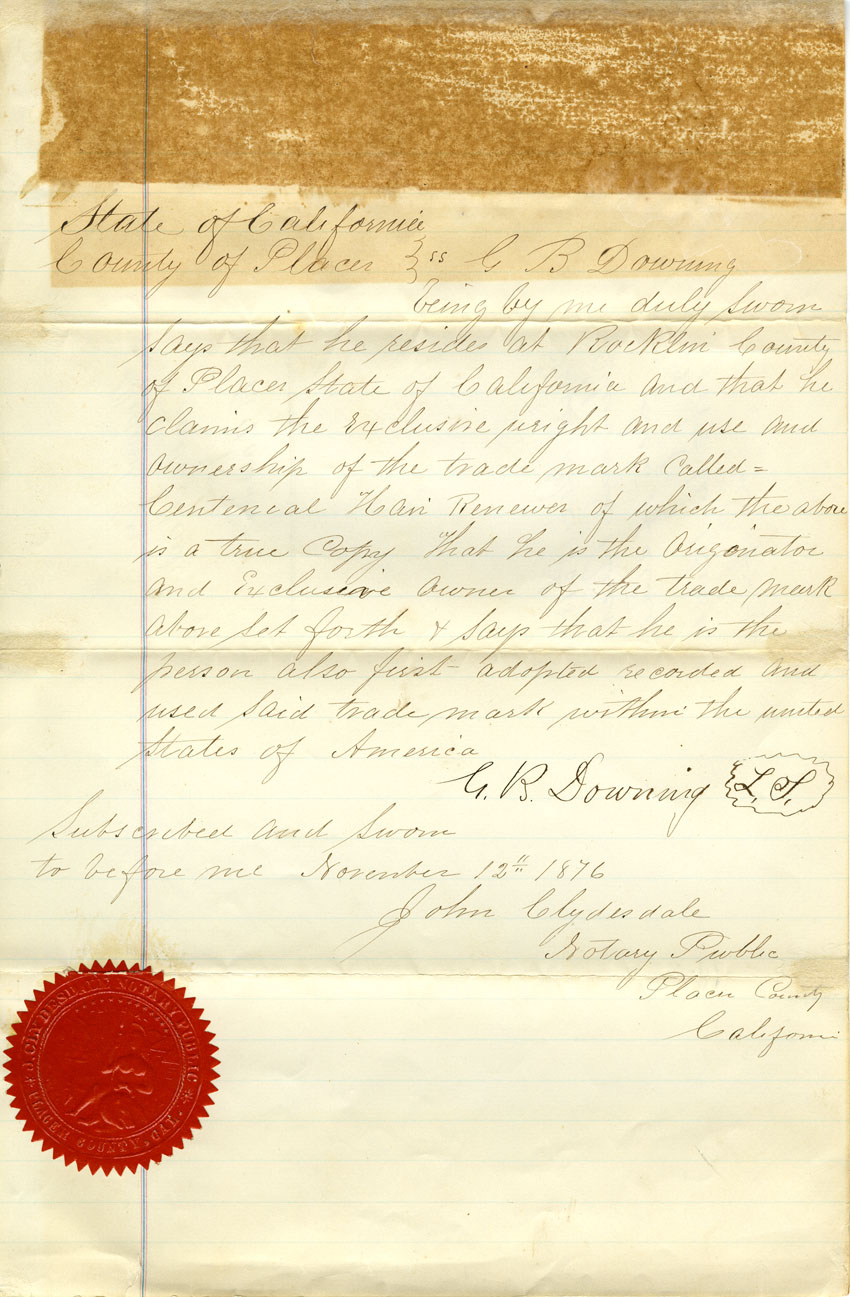 State of California
County of Placer } ss G B Downing
being by me duly sworn
says that he resides at Rocklin County
of Placer State of California and that he
claims the Exclusive wright and use and
ownership of the trade mark called =
Centenial Hair Renewer of which the above
is a true Copy That he is the Originator
and Exclusive owner of the trade mark
above set forth & says that he is the
person also first adopted recorded and
used said trade mark within the united
States of America
G. B. Downing L. S.
Subscribed and sworn
to before me November 12" 1876
John Clydesdale
Notary Public
Placer County
California
J. CLYDESDALE NOTARY PUBLIC
* PLACER COUNTY, CAL. *